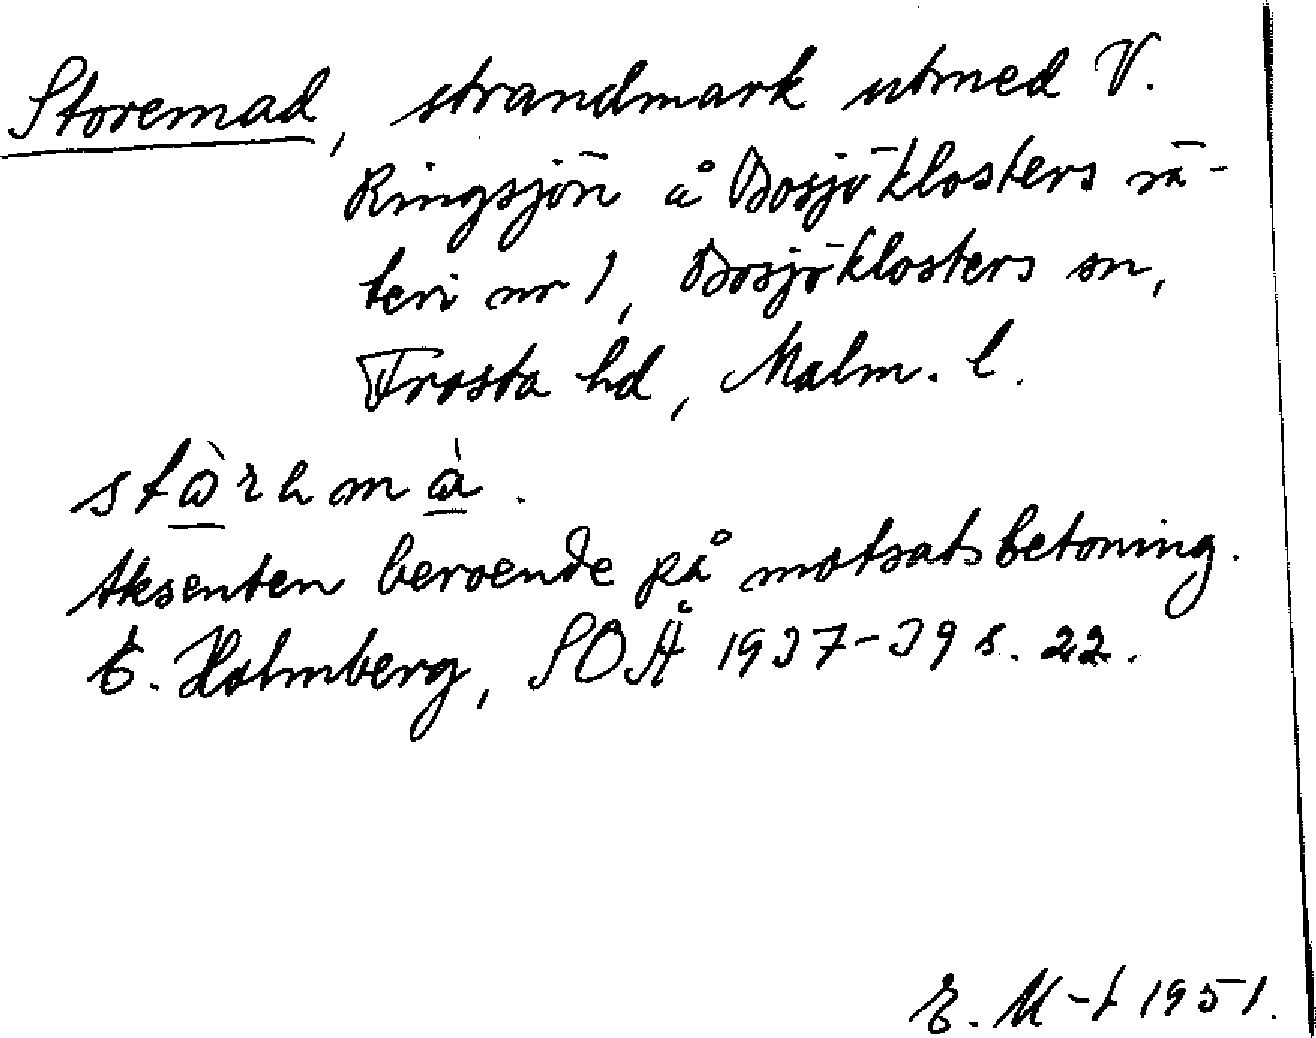 Storemad, strandmark utmed V.
Ringsjön å Bosjöklosters sä-
teri nr 1, Bosjöklosters sn,
Frosta hd, Malm. l.
Aksenten beroende på motsatsbetoning.
E. Holmberg, SOÅ 1937-39 s. 22.
E. M-t 1951.